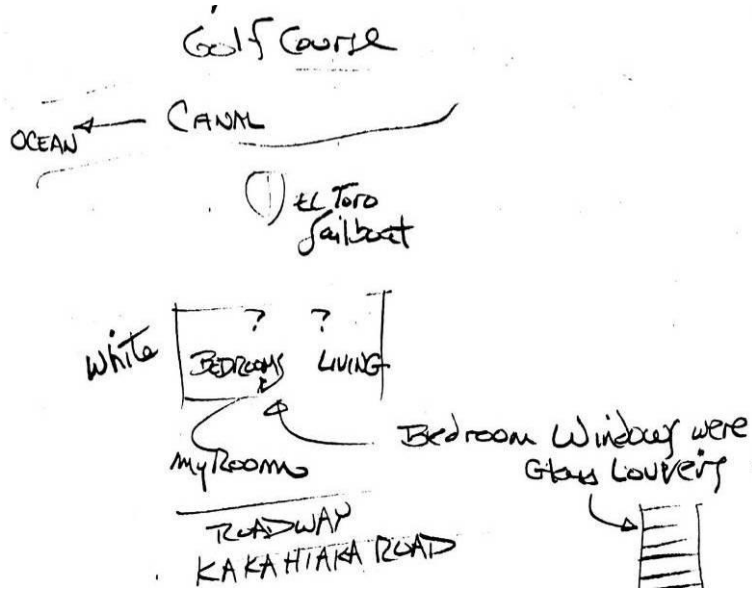 Golf Course
OCEAN
CANAL
EL Toro
Sailboat
White
? ?
BEDROOMS LIVING
Bedroom Windows were
Glass Louvers
My Room
ROADWAY
KAKAHIAKA ROAD